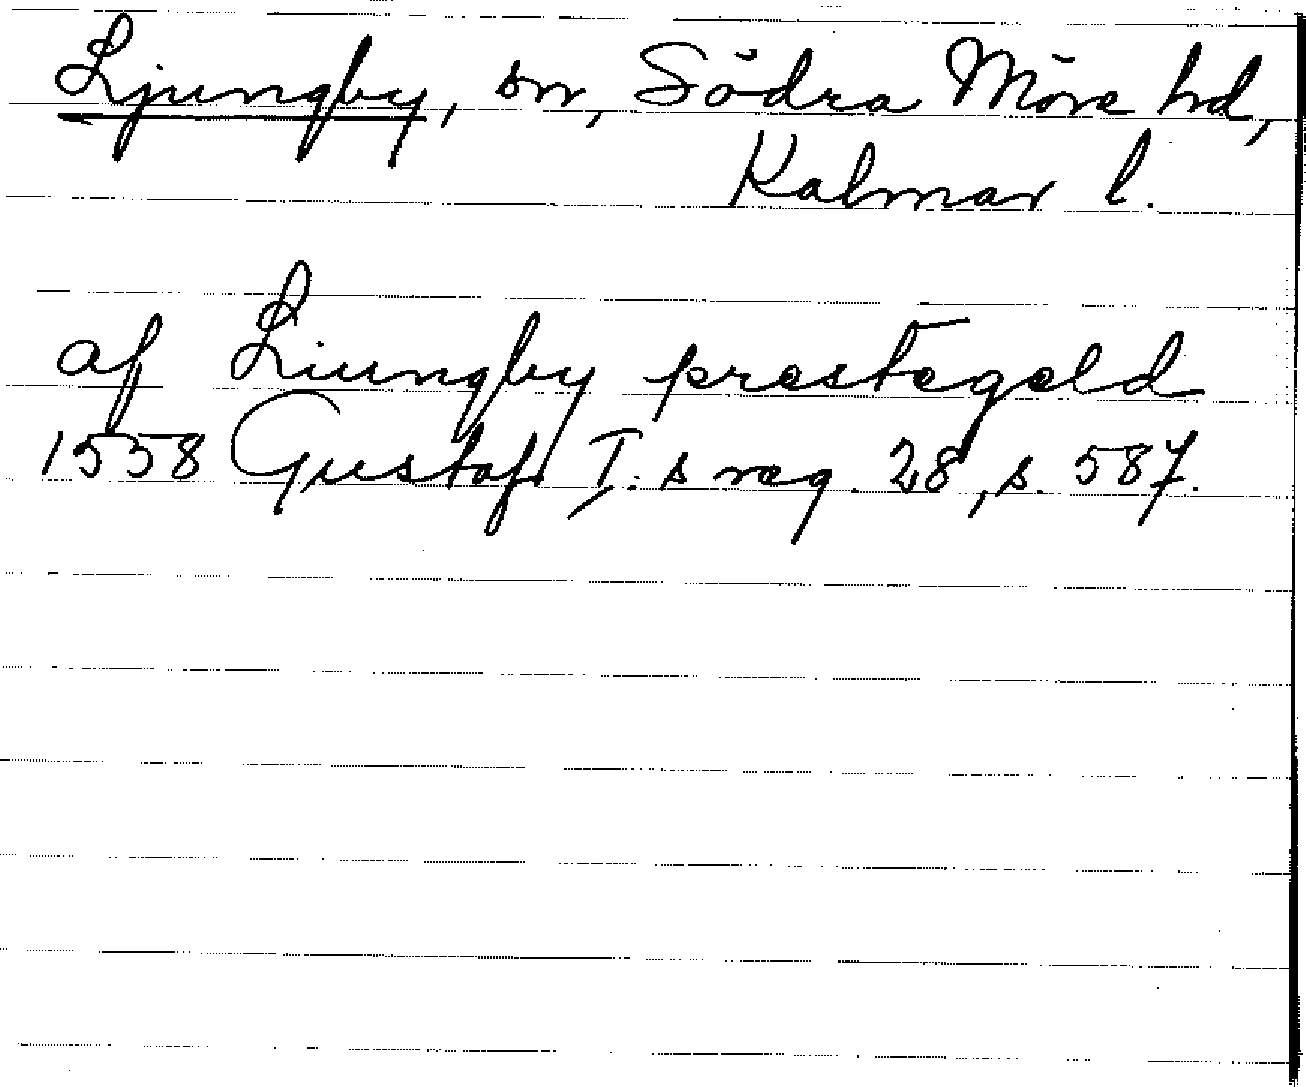 Ljungby, sn, Södra Möre hd,
Kalmar l.
af Liungby prestegeld
1558 Gustaf I:s reg. 28, s. 587.